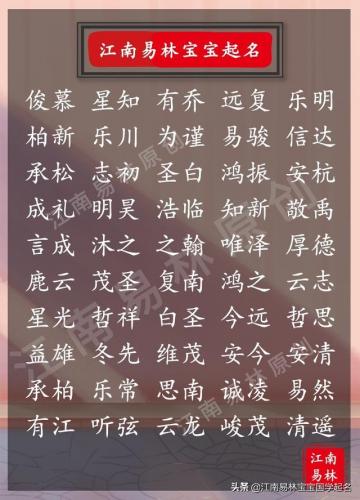 江南易林宝宝起名
俊慕 星知 有乔 远复 乐明
柏新 乐川 为谨 易骏 信达
承松 志初 圣白 鸿振 安杭
成礼 明昊 浩临 知新 敬禹
言成 沐之 之翰 唯泽 厚德
鹿云 茂圣 复南 鸿之 云志
星光 哲祥 白圣 今远 哲思
益雄 冬先 维茂 安今 安清
承柏 乐常 思南 诚凌 易然
有江 听弦 云龙 峻茂 清遥
江南易林原创
江南易林原创
江南
易林
头条 @江南易林宝宝国学起名